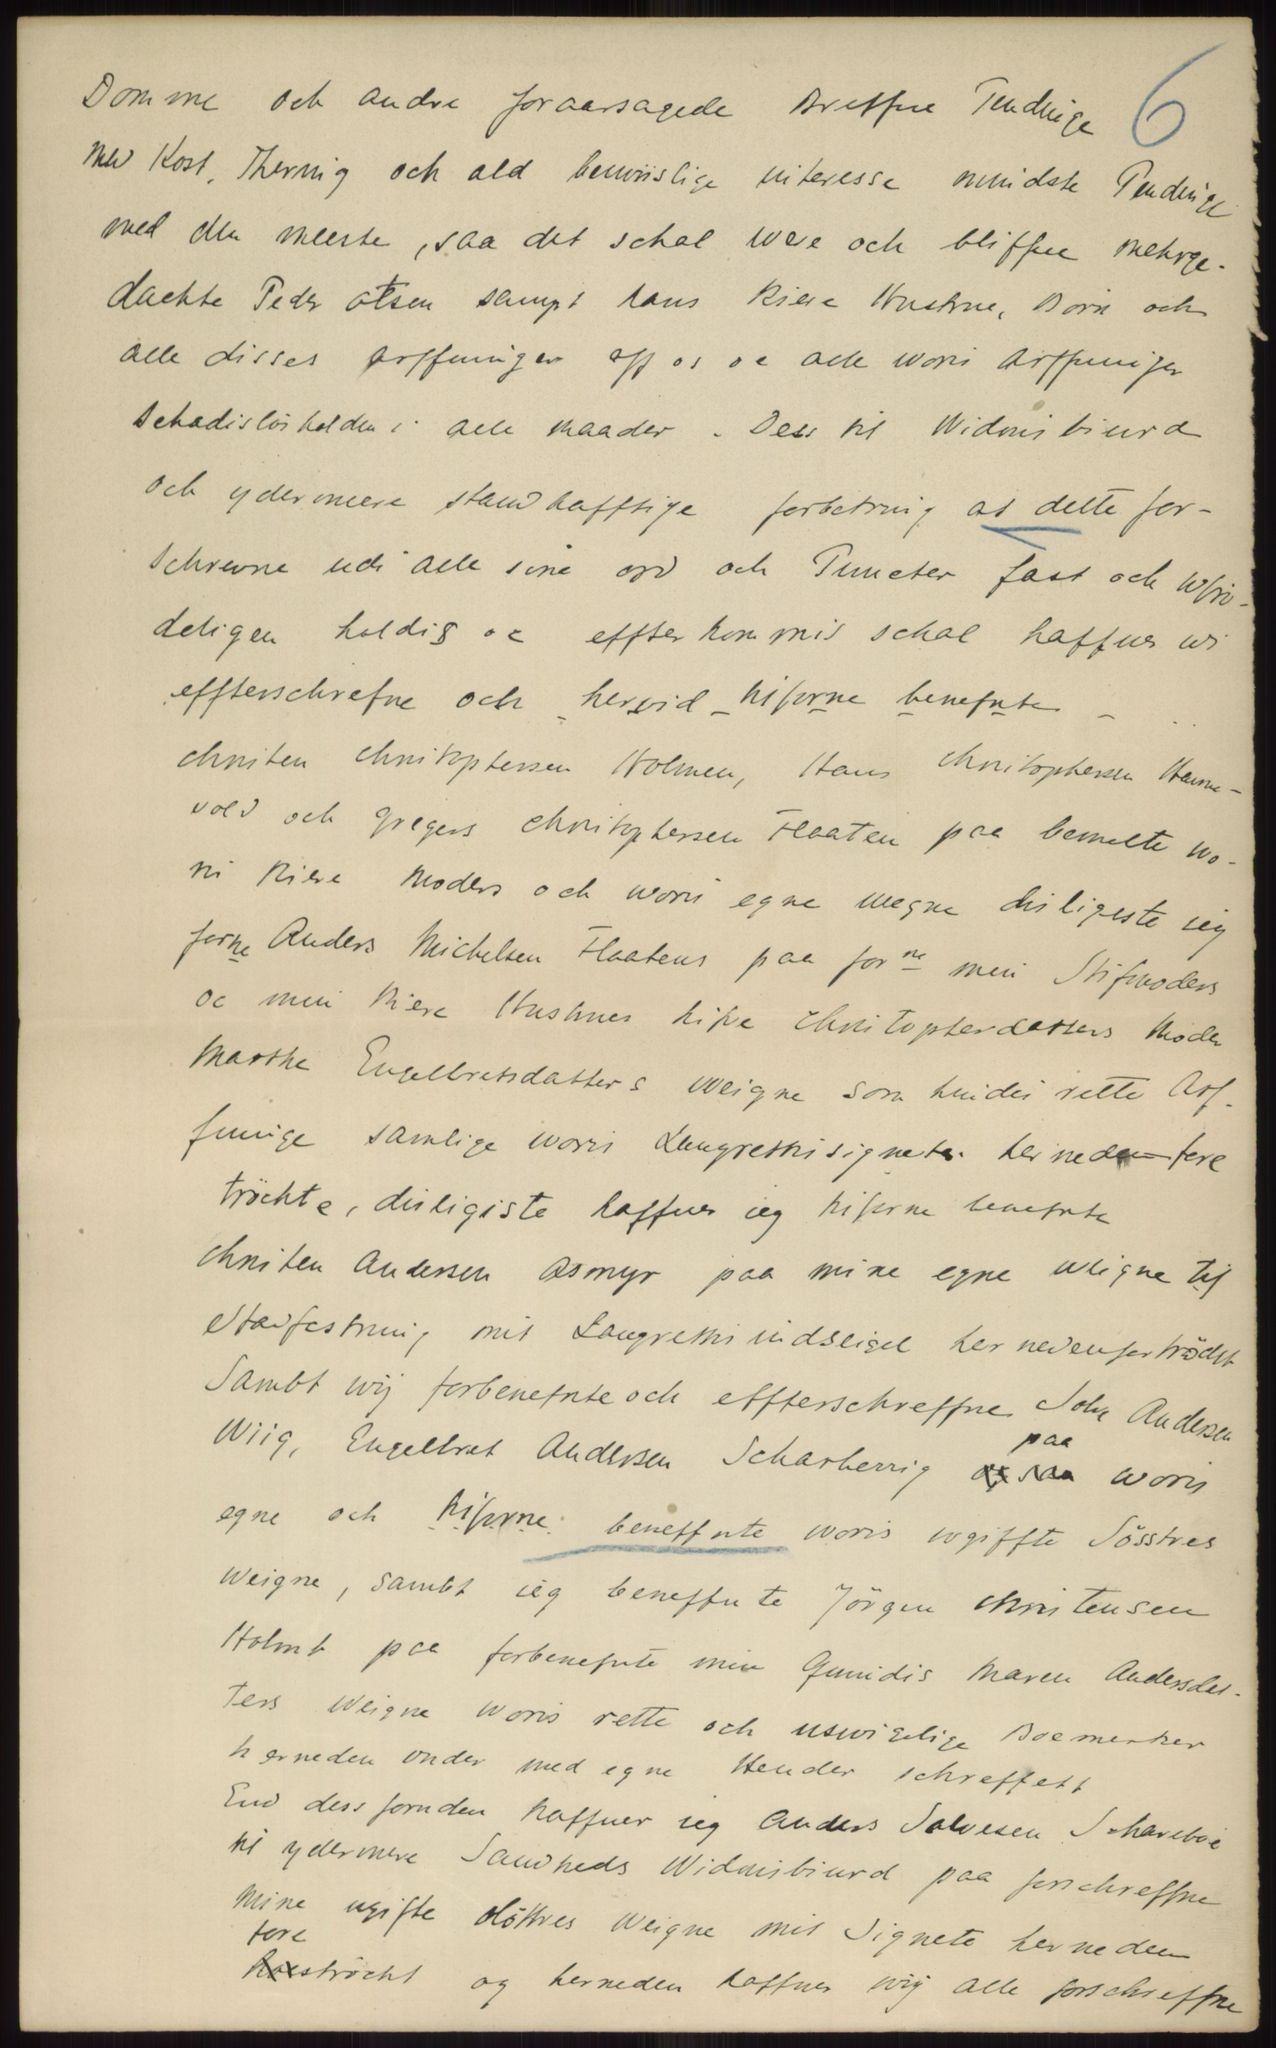 6
Domme och andre foraarsagede Breffue Pendinge
med Kost, Thering och ald bewiislige interesse mindste Pendinge
med den meeste, saa det schal were och bliffue mehrge-
dachte Peder Olsen sampt hans kiere Hustrue, Börn och
alle disses Arffuinger aff os oc alle woris Arffuinger
schadislös holden i alle maader. Dess til Widnisbiurd
och ydermeere standhafftige forbetring at dette for-
schrevne udi alle sine ord och Puncter fast och wfor-
deligen holdis oc effterkommis schal haffuer wi
effterschrefne och hervid hiforne benefnte
Christen Christophersen Holmen, Hans Christophersen Hanne-
vold och Gregers Christophersen Flaaten paa bemelte wo-
ris kiere Moders och woris egne wegne disligeste ieg
forne Anders Michelsen Flaatens paa forne min Stifmoders
oc min kiere Hustrues Kisve Christopherdatters Moder
Marthe Engelbretsdatters weigne som hindis rette Arf-
fuinge samlige woris Laugrettisigneter her neden fore
tröchte, disligiste haffuer ieg hiforne benefnte
Christen Andersen Asmyr paa mine egne weigne til
Stadfestning mit Laugrettis indseigel her nedenfor tröcht
Sambt wij forbenefnte och effterschreffne John Andersen
Wiig, Engelbret Andersen Scharberrig paa woris
egne och hiforne beneffnte woris wgiffte Sösstres
weigne, sambt ieg beneffnte Jörgen Christensen
Holmt paa forbenefnte min Quindis Maren Andersdat-
ters weigne woris rette och uswigelige Boemerker
herneden under med egne Hender schreffett
End dess foruden haffuer ieg Anders Salvesen Schareboe
til ydermere Sandheds Widnisbiurd paa forschreffne
mine ugifte döttres weigne mit Signete herneden
fore
ströcht og herneden haffuer wij alle forschreffne